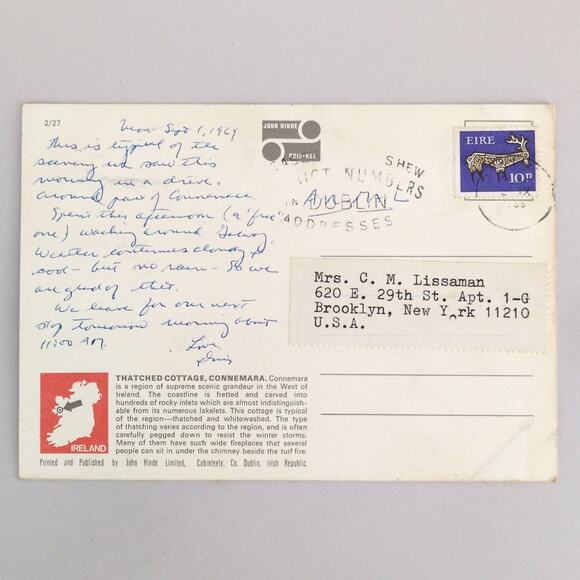 2/27
Mon. Sept 1, 1969
This is typical of the
scenery we saw this
morning in a drive
around part of Connemara.
Spent this afternoon (a "free"
one) walking around Galway.
Weather continues cloudy &
cool - but no rain - So we
are glad of this.
We leave for our next
stop tomorrow morning about
11:00 AM.
Love
JOHN HINDE
ORIGINAL
SHEW
DISTRICT NUMBERS
IN DUBLIN
ADDRESSES
Air Mail
EIRE
10P
Mrs. C. M. Lissaman
620 E. 29th St. Apt. 1-G
Brooklyn, New York 11210
U.S.A.
IRELAND
THATCHED COTTAGE, CONNEMARA. Connemara
is a region of supreme scenic grandeur in the West of
Ireland. The coastline is fretted and carved into
hundreds of rocky inlets which are almost indistinguish-
able from its numerous lakelets. This cottage is typical
of the region—thatched and whitewashed. The type
of thatching varies according to the region, and is often
carefully pegged down to resist the winter storms.
Many of them have such wide fireplaces that several
people can sit in under the chimney beside the turf fire.
Printed and Published by John Hinde Limited, Cabinteely, Co. Dublin, Irish Republic.